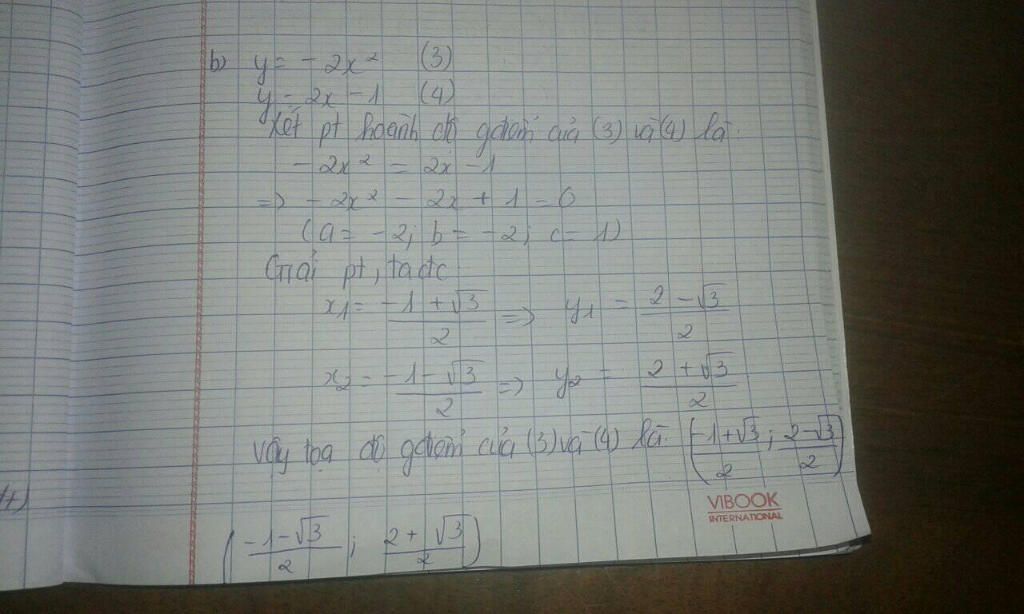 b) y = - 2x² (3)
y = 2x - 1 (4)
Xét pt hoành độ gđiểm của (3) và (4) là:
- 2x² = 2x - 1
=> - 2x² - 2x + 1 = 0
(a = -2; b = -2; c = 1)
Giải pt, ta đc
x₁ = (-1 + √3)/2 => y₁ = (2 - √3)/2
x₂ = (-1 - √3)/2 => y₂ = (2 + √3)/2
Vậy tọa độ gđiểm của (3) và (4) là: ((-1 + √3)/2 ; (2 - √3)/2)
VIBOOK
INTERNATIONAL
((-1 - √3)/2 ; (2 + √3)/2)